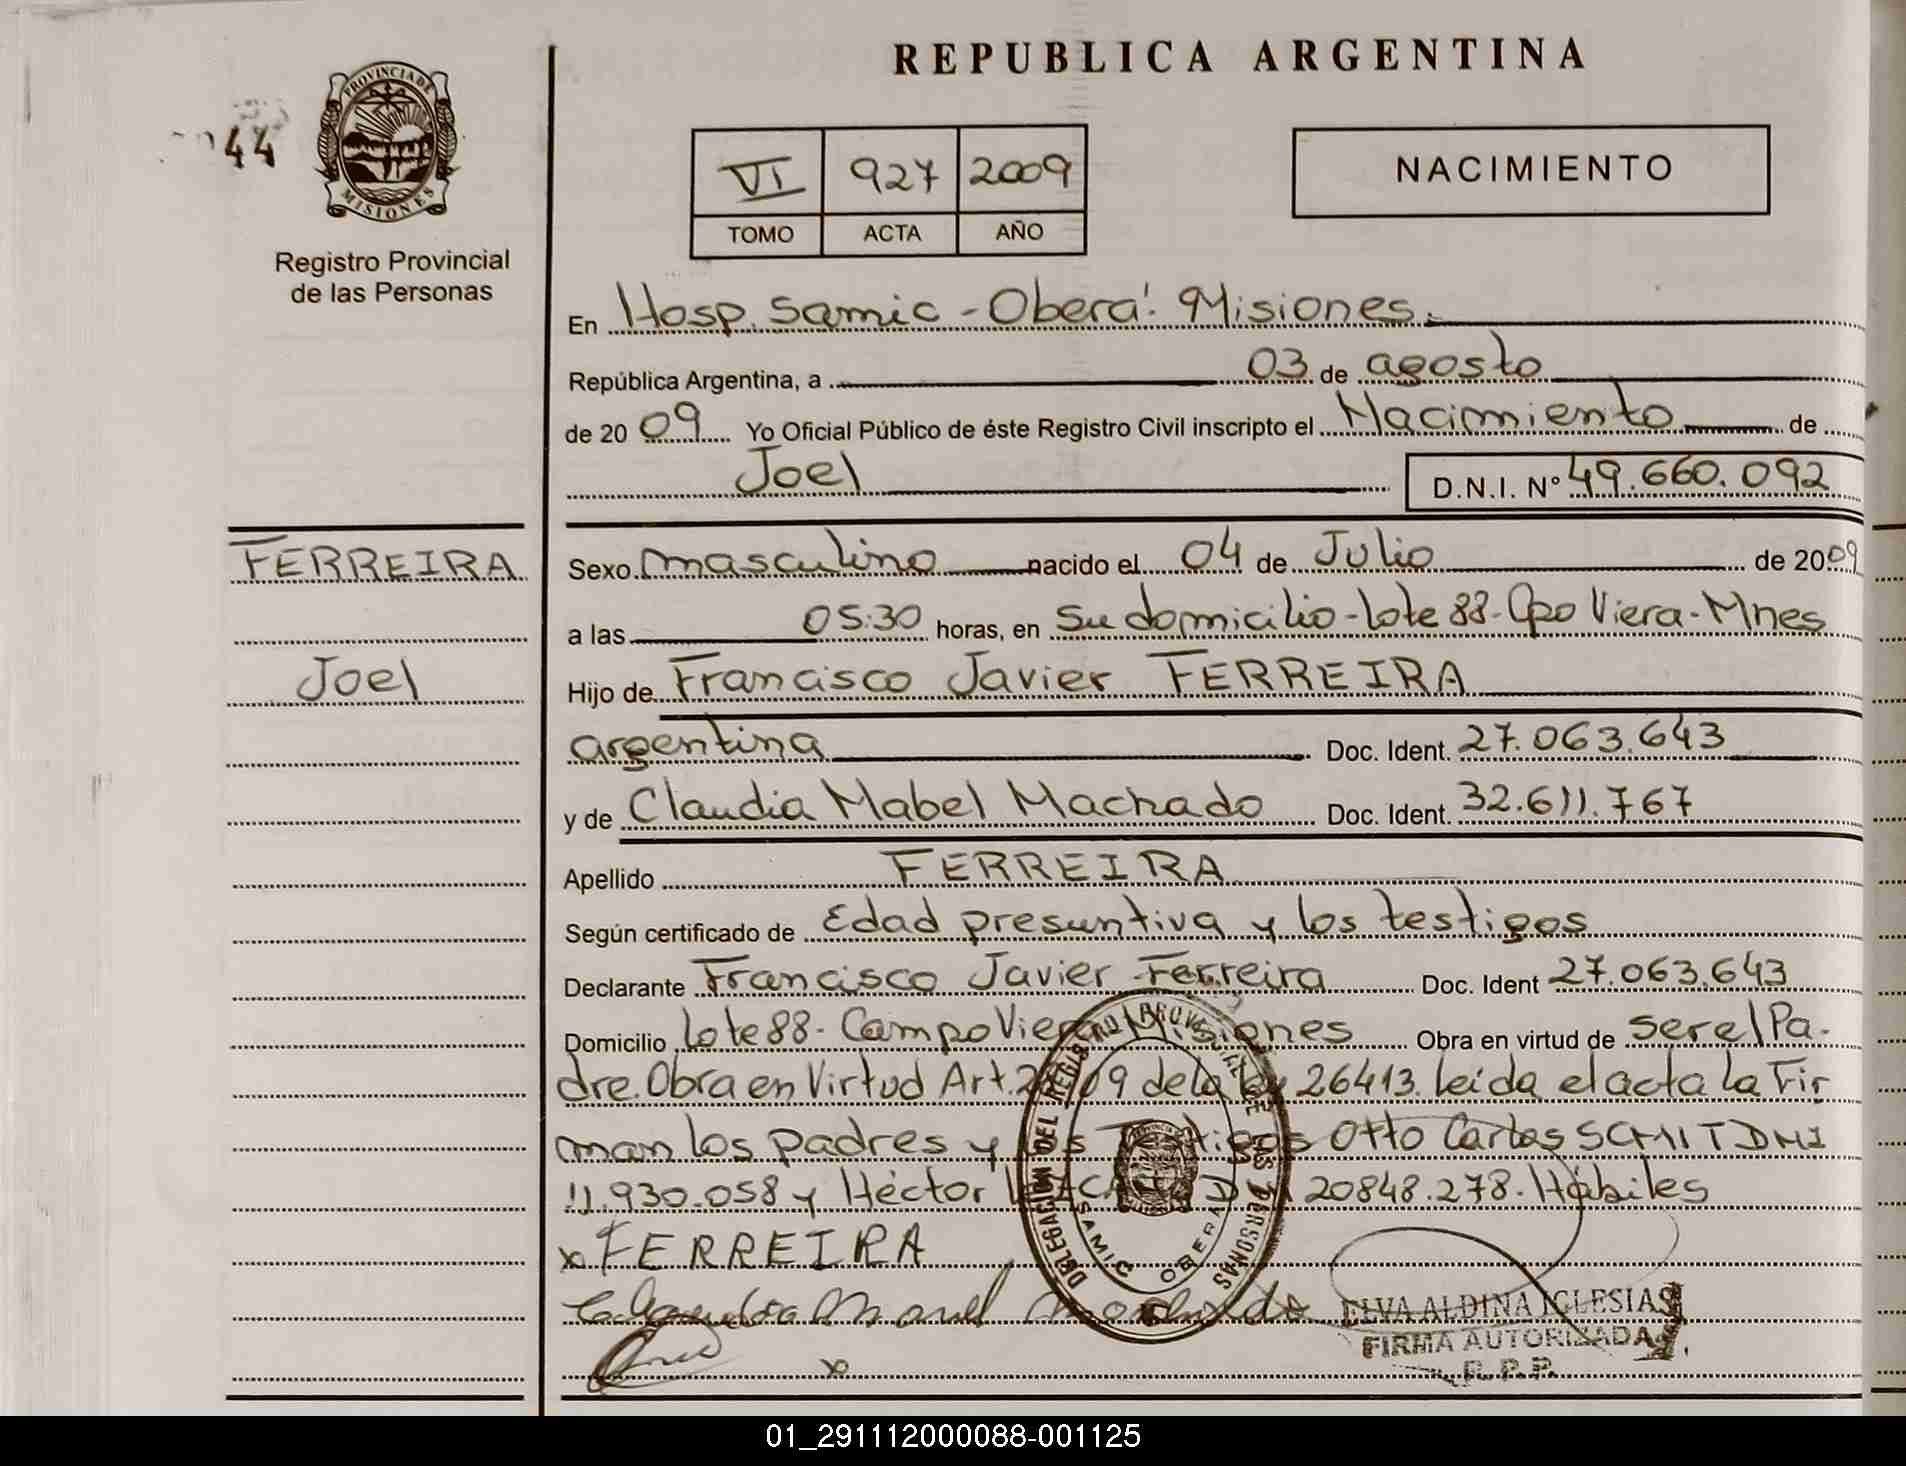 REPUBLICA ARGENTINA
44
PROVINCIA DE
MISIONES
Registro Provincial
de las Personas
VI 927 2009
TOMO ACTA AÑO
NACIMIENTO
En Hosp. Samic - Oberá. Misiones.
República Argentina, a 03 de agosto
de 2009 Yo Oficial Público de éste Registro Civil inscripto el Nacimiento de
Joel D.N.I. N° 49.660.092
FERREIRA
Joel
Sexo masculino nacido el 04 de Julio de 2009
a las 05:30 horas, en Su domicilio - lote 88 - Cpo Viera - Mnes
Hijo de Francisco Javier FERREIRA
argentina Doc. Ident. 27.063.643
y de Claudia Mabel Machado Doc. Ident. 32.611.767
Apellido FERREIRA
Según certificado de Edad presuntiva y los testigos
Declarante Francisco Javier Ferreira Doc. Ident 27.063.643
Domicilio Lote 88 - Campo Viera Misiones Obra en virtud de ser el Pa-
dre. Obra en Virtud Art. 09 de la ley 26413. leída el acta la Fir
man los padres y los Testigos Otto Carlos SCMITDNI
11.930.058 y Héctor 20848.278. Hábiles
x FERREIRA
x
DELEGACION DEL REGISTRO PROVINCIAL DE LAS PERSONAS
SAMIC OBERA
ELVA ALDINA IGLESIAS
FIRMA AUTORIZADA
R.P.P.
01_291112000088-001125